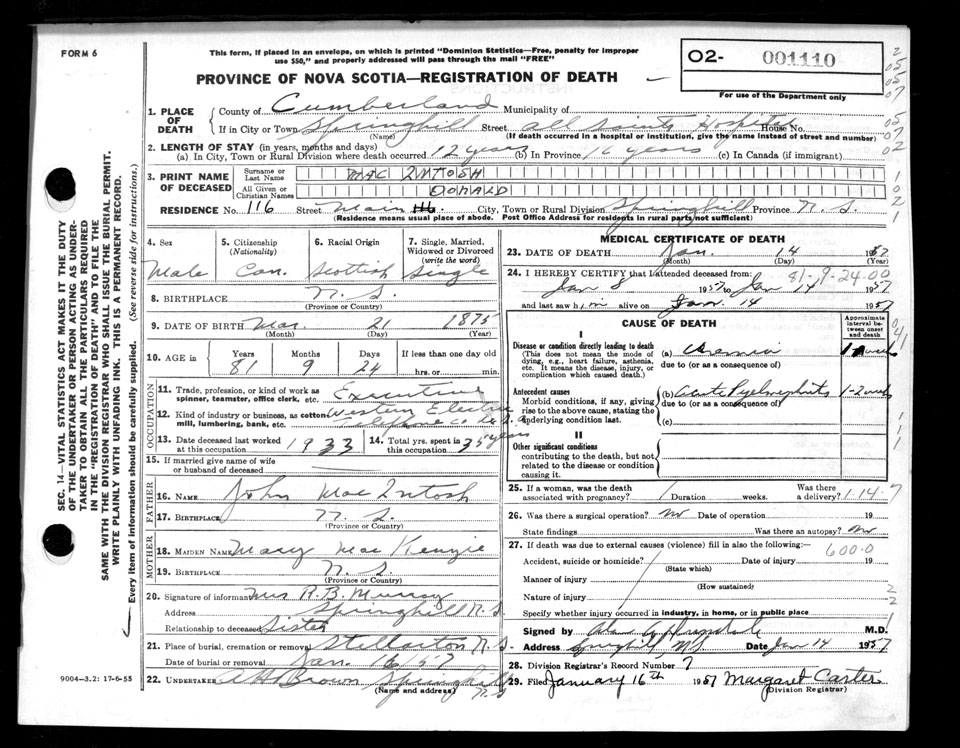 FORM 6
This form, if placed in an envelope, on which is printed "Dominion Statistics—Free, penalty for improper
use $50," and properly addressed will pass through the mail "FREE"
PROVINCE OF NOVA SCOTIA—REGISTRATION OF DEATH
O2- 001110
For use of the Department only
1. PLACE OF DEATH
County of Cumberland Municipality of
If in City or Town Springhill Street All Saints Hospital House No.
(Name) (If death occurred in a hospital or institution, give the name instead of street and number)
2. LENGTH OF STAY (in years, months and days)
(a) In City, Town or Rural Division where death occurred 12 years (b) In Province 16 years (c) In Canada (if immigrant)
3. PRINT NAME OF DECEASED
Surname or Last Name MAC INTOSH
All Given or Christian Names DONALD
RESIDENCE No. 116 Street Main City, Town or Rural Division Springhill Province N.S.
(Residence means usual place of abode. Post Office Address for residents in rural parts not sufficient)
4. Sex Male
5. Citizenship (Nationality) Can.
6. Racial Origin Scottish
7. Single, Married, Widowed or Divorced (write the word) Single
8. BIRTHPLACE N.S.
(Province or Country)
9. DATE OF BIRTH Mar. 21 1875
(Month) (Day) (Year)
10. AGE in Years 81 Months 9 Days 24 If less than one day old hrs. or min.
OCCUPATION
11. Trade, profession, or kind of work as spinner, teamster, office clerk, etc. Executive
12. Kind of industry or business, as cotton mill, lumbering, bank, etc. Western Electric Telephone Co
13. Date deceased last worked at this occupation 1933
14. Total yrs. spent in this occupation 35 years
15. If married give name of wife or husband of deceased
FATHER
16. NAME John Mac Intosh
17. BIRTHPLACE N.S.
(Province or Country)
MOTHER
18. MAIDEN NAME Mary Mac Kenzie
19. BIRTHPLACE N.S.
(Province or Country)
20. Signature of informant Mrs R.B. Murray
Address Springhill N.S.
Relationship to deceased Sister
21. Place of burial, cremation or removal Stellarton N.S.
Date of burial or removal Jan. 16/57
22. UNDERTAKER A H Brown Springhill N.S
(Name and address)
9004—3.2: 17-6-55
MEDICAL CERTIFICATE OF DEATH
23. DATE OF DEATH Jan. 14 1957
(Month) (Day)
24. I HEREBY CERTIFY that I attended deceased from:
81-9-24-00
Jan 8 1957 to Jan 14 1957
and last saw him alive on Jan. 14 1957
CAUSE OF DEATH
Approximate interval between onset and death
I
Disease or condition directly leading to death
(This does not mean the mode of dying, e.g., heart failure, asthenia, etc. It means the disease, injury, or complication which caused death.)
(a) Uremia 1 week
due to (or as a consequence of)
Antecedent causes
Morbid conditions, if any, giving rise to the above cause, stating the underlying condition last.
(b) Acute Pyelonephritis 1-2 weeks
due to (or as a consequence of)
(c)
II
Other significant conditions
contributing to the death, but not related to the disease or condition causing it.
25. If a woman, was the death associated with pregnancy? Duration weeks. Was there a delivery? 1-14-7
26. Was there a surgical operation? No Date of operation 19
State findings Was there an autopsy? No
27. If death was due to external causes (violence) fill in also the following:—
600-0
Accident, suicide or homicide? Date of injury 19
(State which)
Manner of injury
(How sustained)
Nature of injury
Specify whether injury occurred in industry, in home, or in public place
Signed by M.D.
Address Springhill N.S. Date Jan 14 1957
28. Division Registrar's Record Number 7
29. Filed January 16th 1957 Margaret Carter
(Division Registrar)
SEC. 14—VITAL STATISTICS ACT MAKES IT THE DUTY
OF THE UNDERTAKER OR PERSON ACTING AS UNDER-
TAKER TO OBTAIN ALL THE PARTICULARS REQUIRED
IN THE "REGISTRATION OF DEATH" AND TO FILE THE
SAME WITH THE DIVISION REGISTRAR WHO SHALL ISSUE THE BURIAL PERMIT.
WRITE PLAINLY WITH UNFADING INK. THIS IS A PERMANENT RECORD.
Every item of information should be carefully supplied. (See reverse side for instructions.)